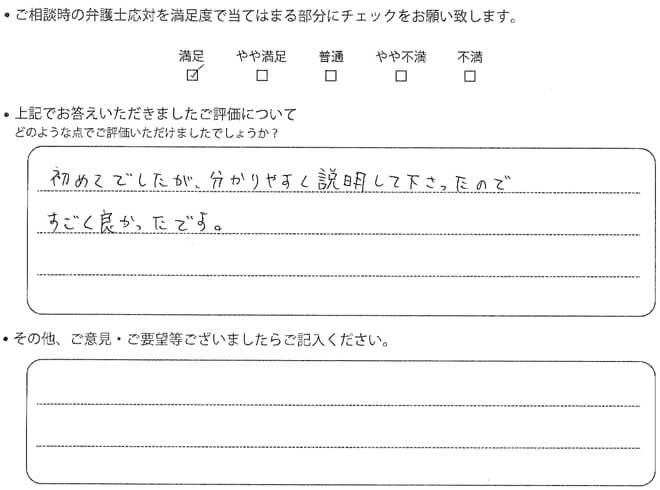 • ご相談時の弁護士応対を満足度で当てはまる部分にチェックをお願い致します。
満足 やや満足 普通 やや不満 不満
☑ ☐ ☐ ☐ ☐
• 上記でお答えいただきましたご評価について
どのような点でご評価いただけましたでしょうか？
初めてでしたが、分かりやすく説明して下さったので
すごく良かったです。
• その他、ご意見・ご要望等ございましたらご記入ください。